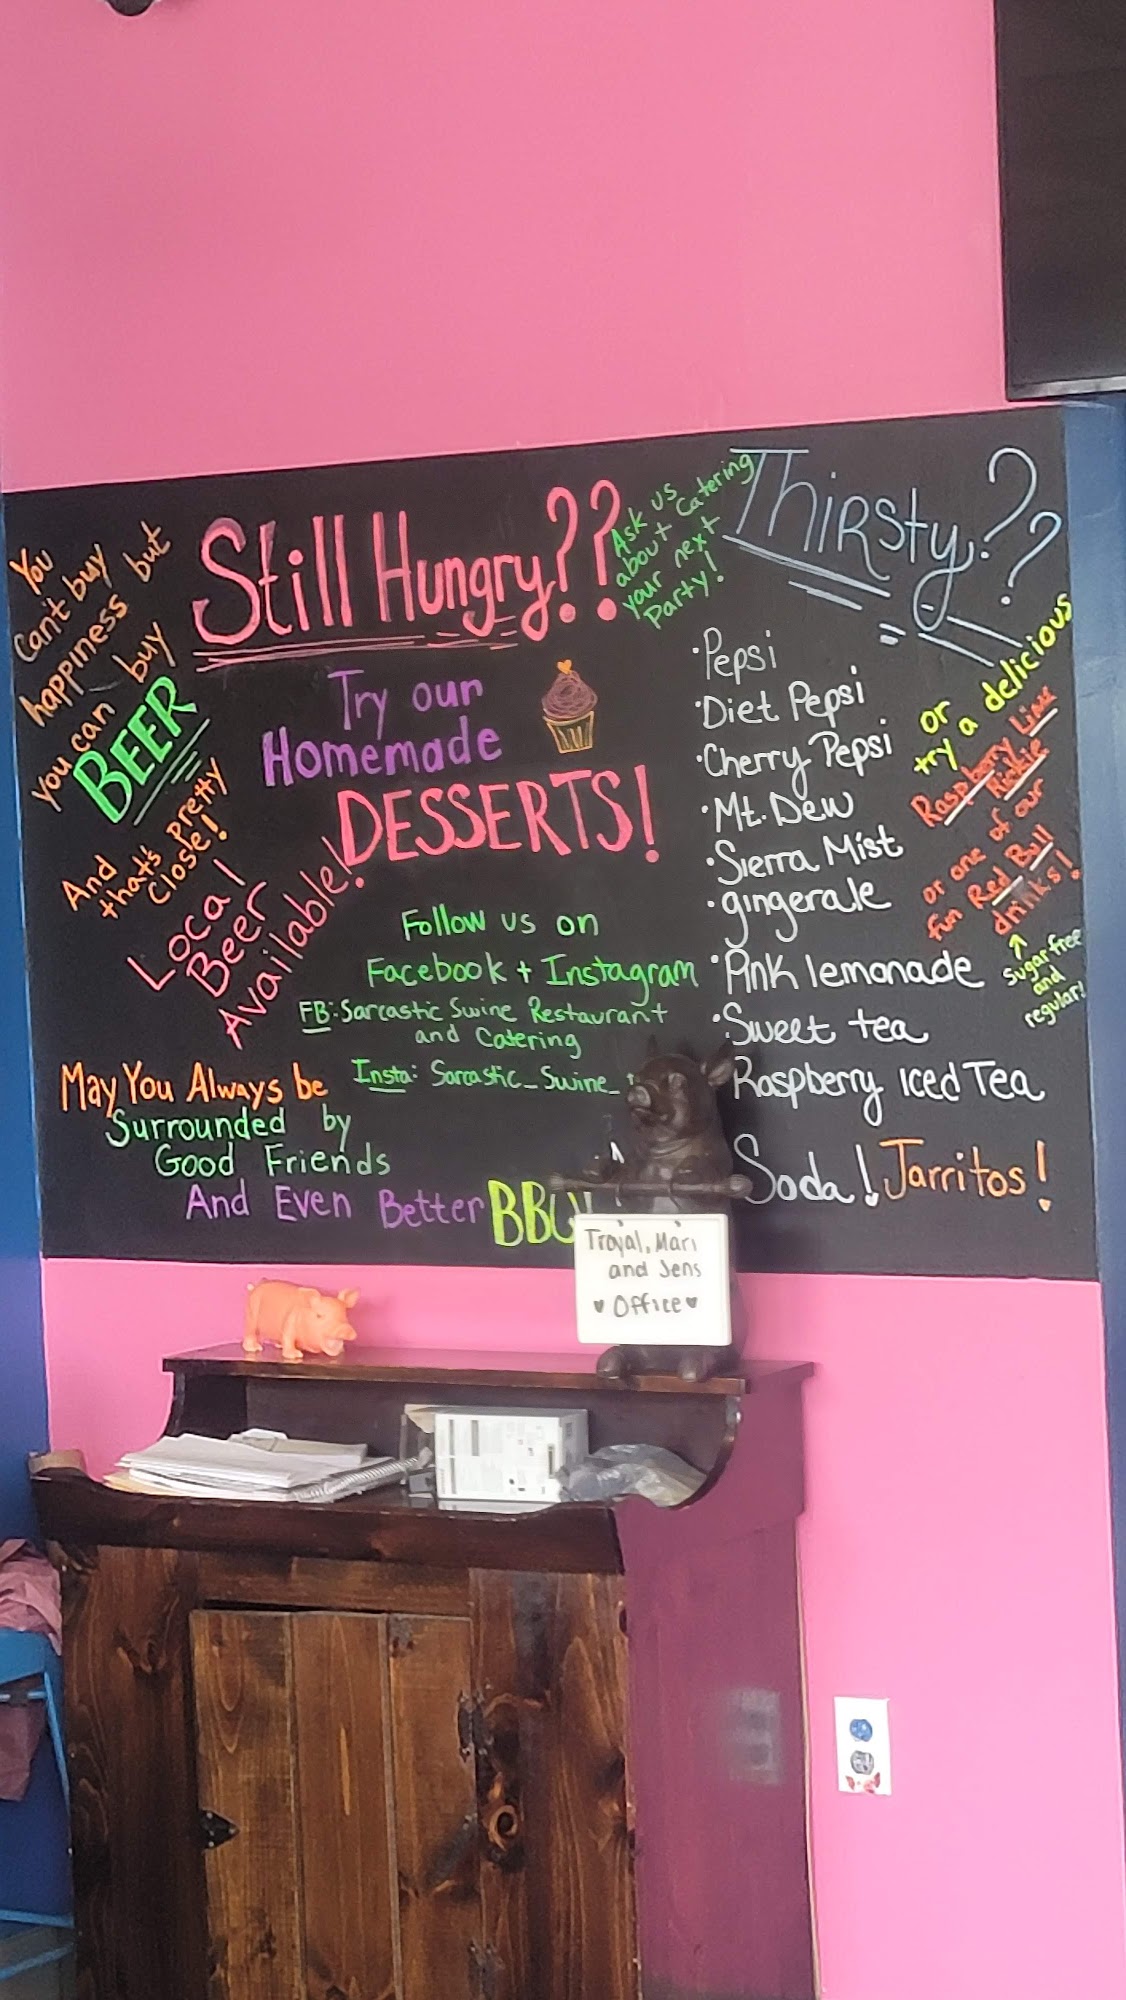 You
Can't buy
happiness but
you can buy
BEER
And
that's pretty
close!
Local
Beer
Available!
Still Hungry??
Try our
Homemade
DESSERTS!
Ask us
about Catering
your next
Party!
Follow us on
Facebook + Instagram
FB: Sarcastic Swine Restaurant
and Catering
Insta: Sarcastic_Swine_
May You Always be
Surrounded by
Good Friends
And Even Better
BBQ
Thirsty??
•Pepsi
•Diet Pepsi
•Cherry Pepsi
•Mt. Dew
•Sierra Mist
•gingerale
•Pink lemonade
•Sweet tea
Raspberry Iced Tea
Soda! Jarritos!
or
try a delicious
Raspberry Lime
Rickie
or one of our
fun Red Bull
drinks!
Sugarfree
and
regular!
Trojal, Mari
and Jens
♥ Office ♥